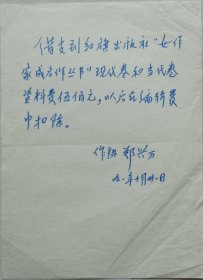 借支到红旗出版社“女作
家成名作丛书”现代卷和当代卷
资料费伍佰元，以后在编辑费
中扣除。
作协 郑兴万
九〇年十月廿一日